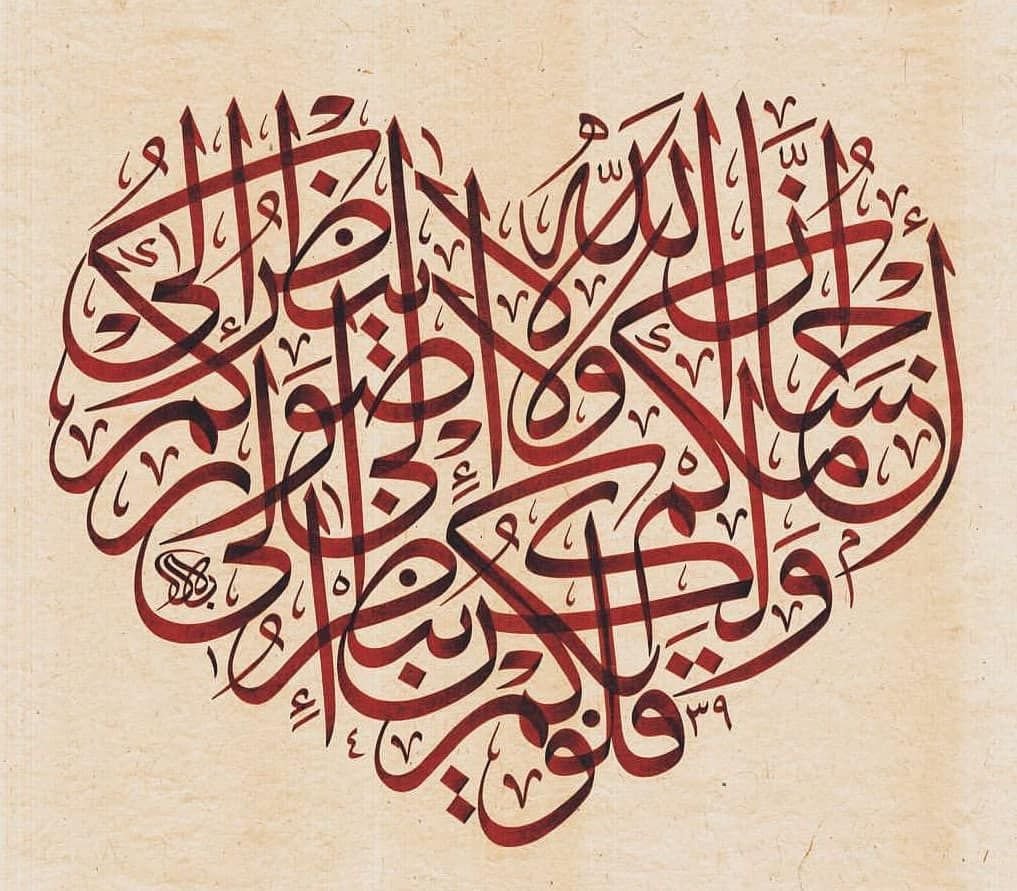 إنَّ اللّٰه لا ينظر إلى
أجسامكم ولا إلى صوركم
ولكن ينظر إلى
قلوبكم
١٤٣٩